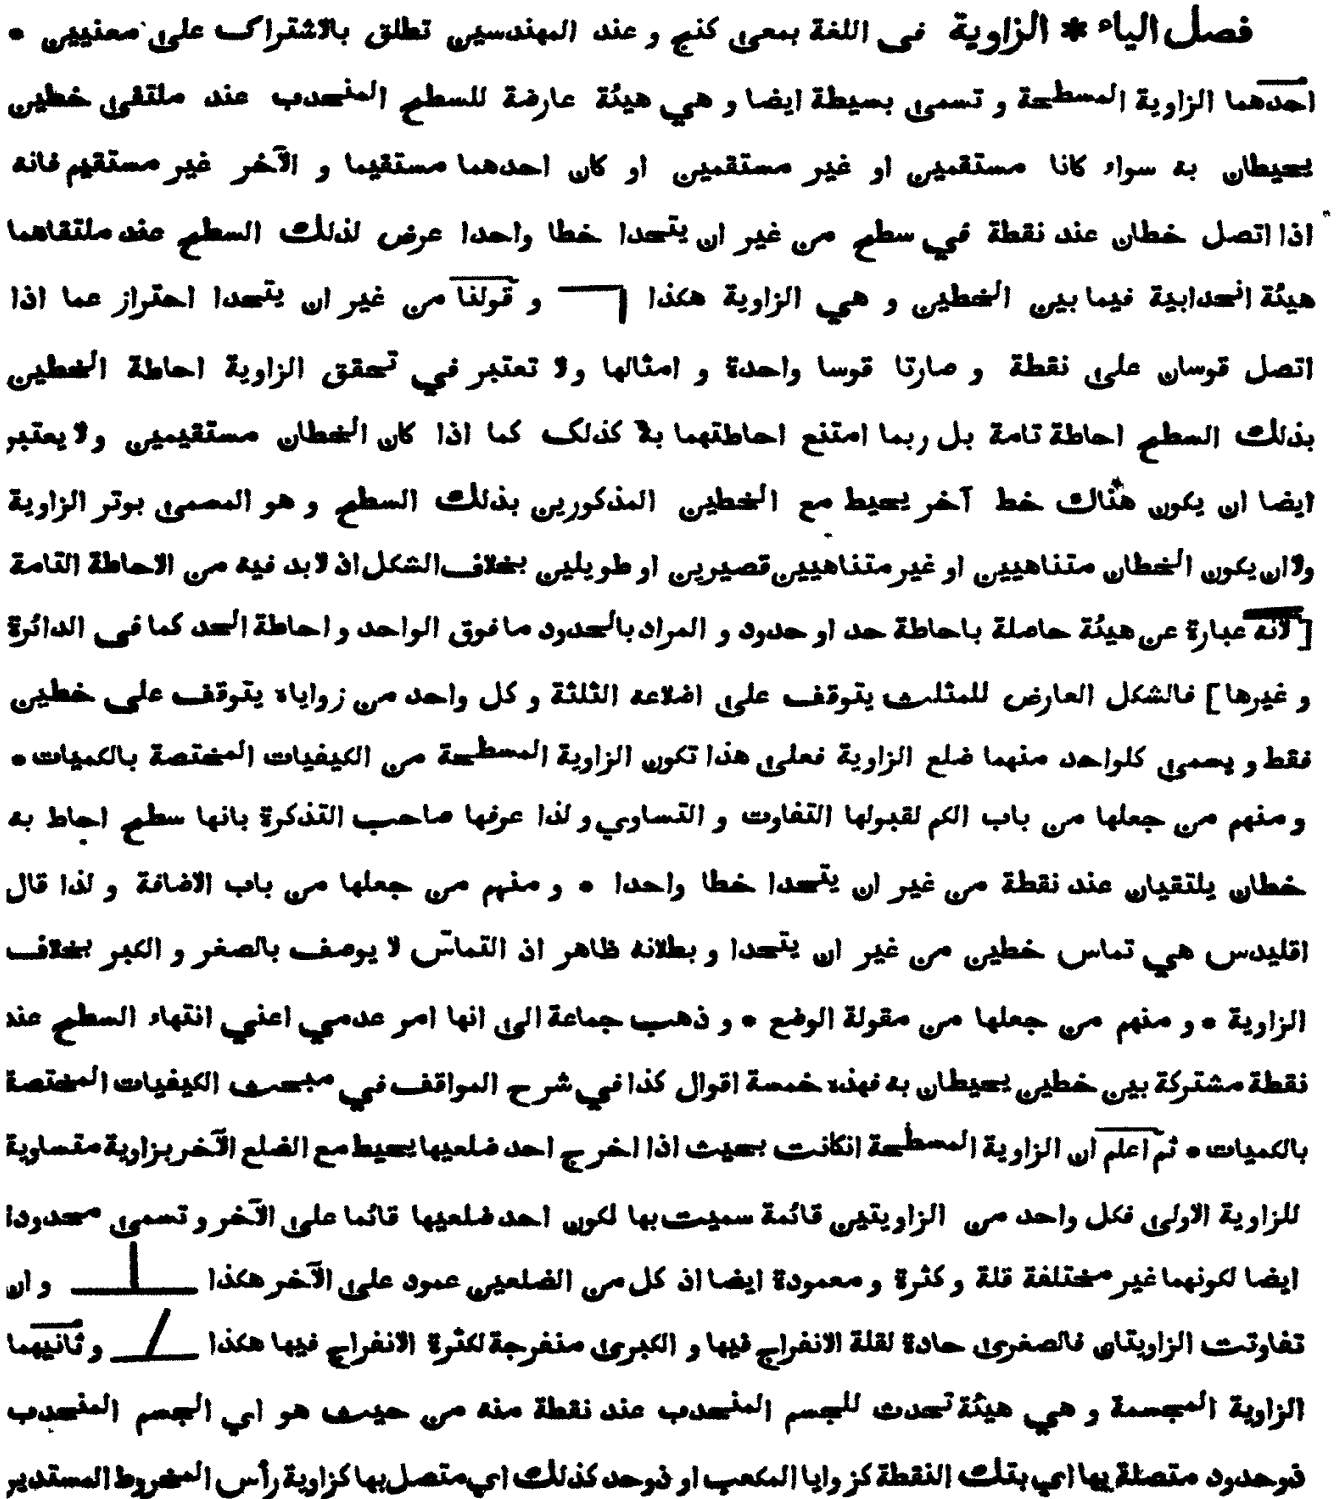 فصل الياء * الزاوية فى اللغة بمعى كنج و عند المهندسين تطلق بالاشتراك على معنيين •
احدهما الزاوية المسطحة و تسمى بسيطة ايضا و هي هيئة عارضة للسطح المنحدب عند ملتقى خطين
يحيطان به سواء كانا مستقمين او غير مستقمين او كان احدهما مستقيما و الآخر غير مستقيم فانه
اذا اتصل خطان عند نقطة في سطح من غير ان يتحدا خطا واحدا عرض لذلك السطح عند ملتقاهما
هيئة انحدابية فيما بين الخطين و هي الزاوية هكذا و قولنا من غير ان يتحدا احتراز عما اذا
اتصل قوسان على نقطة و صارتا قوسا واحدة و امثالها ولا تعتبر في تحقق الزاوية احاطة الخطين
بذلك السطح احاطة تامة بل ربما امتنع احاطتهما بلا كذلك كما اذا كان الخطان مستقيمين ولا يعتبر
ايضا ان يكون هناك خط آخر يحيط مع الخطين المذكورين بذلك السطح و هو المسمى بوتر الزاوية
ولا ان يكون الخطان متناهيين او غير متناهيين قصيرين او طويلين بخلاف الشكل اذ لابد فيه من الاحاطة التامة
[ لانه عبارة عن هيئة حاصلة باحاطة حد او حدود و المراد بالحدود مافوق الواحد و احاطة الحد كما فى الدائرة
و غيرها ] فالشكل العارض للمثلث يتوقف على اضلاعه الثلثة و كل واحد من زواياه يتوقف على خطين
فقط و يسمى كلواحد منهما ضلع الزاوية فعلى هذا تكون الزاوية المسطحة من الكيفيات المختصة بالكميات •
و منهم من جعلها من باب الكم لقبولها التفاوت و التساوي و لذا عرفها صاحب التذكرة بانها سطح احاط به
خطان يلتقيان عند نقطة من غير ان يتحدا خطا واحدا • و منهم من جعلها من باب الاضافة و لذا قال
اقليدس هي تماس خطين من غير ان يتحدا و بطلانه ظاهر اذ التماس لا يوصف بالصغر و الكبر بخلاف
الزاوية • و منهم من جعلها من مقولة الوضع • و ذهب جماعة الى انها امر عدمي اعني انتهاء السطح عند
نقطة مشتركة بين خطين يحيطان به فهذه خمسة اقوال كذا في شرح المواقف في مبحث الكيفيات المختصة
بالكميات • ثم اعلم ان الزاوية المسطحة انكانت بحيث اذا اخرج احد ضلعيها يحيط مع الضلع الآخر بزاوية متساوية
للزاوية الاولى فكل واحد من الزاويتين قائمة سميت بها لكون احد ضلعيها قائما على الآخر و تسمى محدودا
ايضا لكونهما غير مختلفة قلة و كثرة و معمودة ايضا اذ كل من الضلعين عمود على الآخر هكذا و ان
تفاوتت الزاويتان فالصغرى حادة لقلة الانفراج فيها و الكبرى منفرجة لكثرة الانفراج فيها هكذا و ثانيهما
الزاوية المجسمة و هي هيئة تحدث للجسم المنحدب عند نقطة منه من حيث هو اي الجسم المنحدب
ذوحدود متصلة بها اي بتلك النقطة كزوايا المكعب او ذوحد كذلك اي متصل بها كزاوية رأس المخروط المستدير